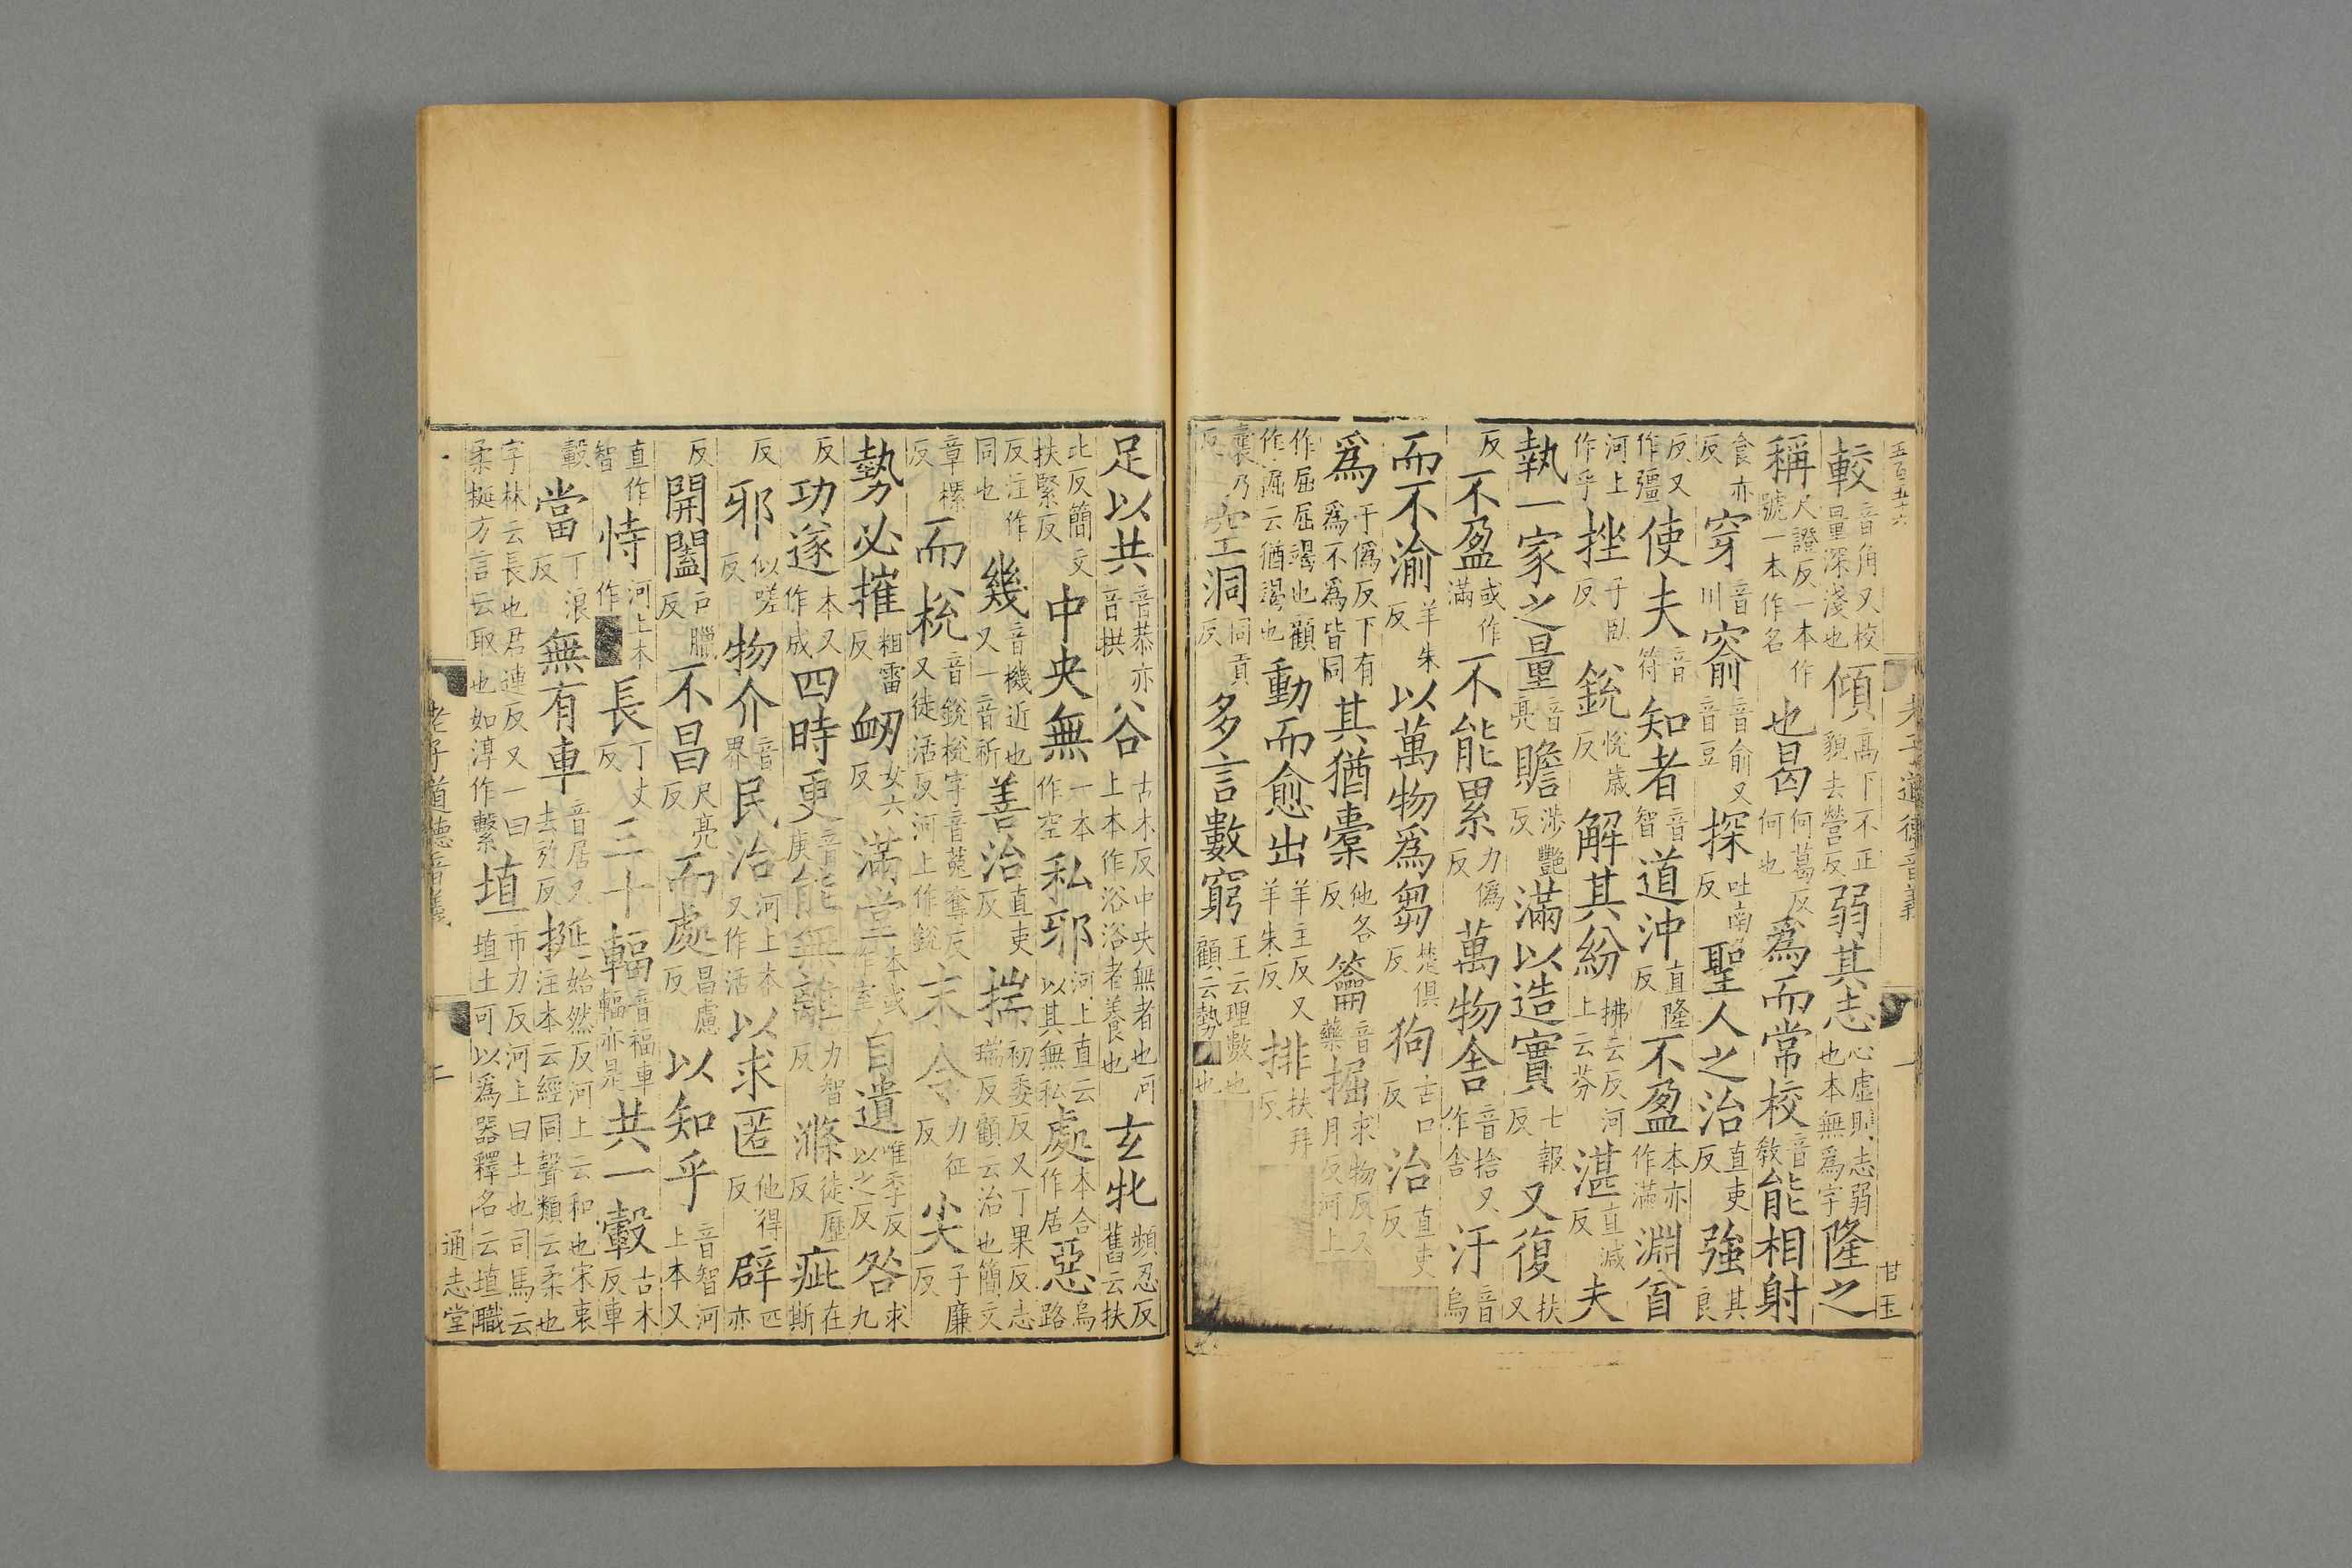 五百五十六
甘玉
較音角又校量深淺也傾高下不正貌去營反弱其志心虛則志弱也本無為字隆之
稱尺證反一本作號一本作名也曷何葛反何也爲而常校音教能相射
食亦反穿音川窬音俞又音豆探吐南反聖人之治直吏反強其良
反又作彊使夫音符知者音智道沖直隆反不盈本亦作滿淵㝐
河上作乎挫子臥反銳悅歲反解其紛拂云反河上云芬湛直減反夫
執一家之量音亮贍涉豔反滿以造實七報反又復扶又
反不盈或作滿不能累力僞反萬物舍音捨又作舎汙音烏
而不渝羊朱反以萬物爲芻楚俱反狗古口反治直吏反
爲于僞反下有爲不爲皆同其猶橐他各反籥音藥掘求物反又月反河上
作屈屈竭也顧作掘云猶竭也動而愈出羊主反又羊朱反排扶拜反
囊乃反空洞同貢反多言數窮王云理數也顧云勢也
足以共音恭亦音拱谷古木反中央無者也河上本作浴浴者養也玄牝頻忍反舊云扶
比反簡文扶緊反中央無一本作空私邪河上直云以其無私處本合作居惡烏路
反注作同也幾音機近也又一音祈善治直吏反揣初委反又丁果反志瑞反顧云治也簡文
章樏反而梲音銳梲字音菟奪反又徒活反河上作銳末令力征反尖子廉反
勢必摧粗雷反衂女六反滿堂本或作室自遺唯季反以之反咎求九
反功遂本又作成四時更音庚能無離力智反滌徒歷反疵在斯
反邪似嗟反物介音界民治河上本又作活以求匿他得反辟匹亦
反開闔戶臘反不昌尺亮反而處昌慮反以知乎音智河上本又
直作智恃河上本作長丁丈反三十輻音福車輻亦是共一轂古木反車
轂當丁浪反無有車音居又去於反挻始然反河上云和也宋衷注本云經同聲類云柔也
字林云長也君連反又一曰柔挻方言云取也如淳作繫埴市力反河上曰土也司馬云埴土可以爲器釋名云埴職
老子道德音義
二
通志堂